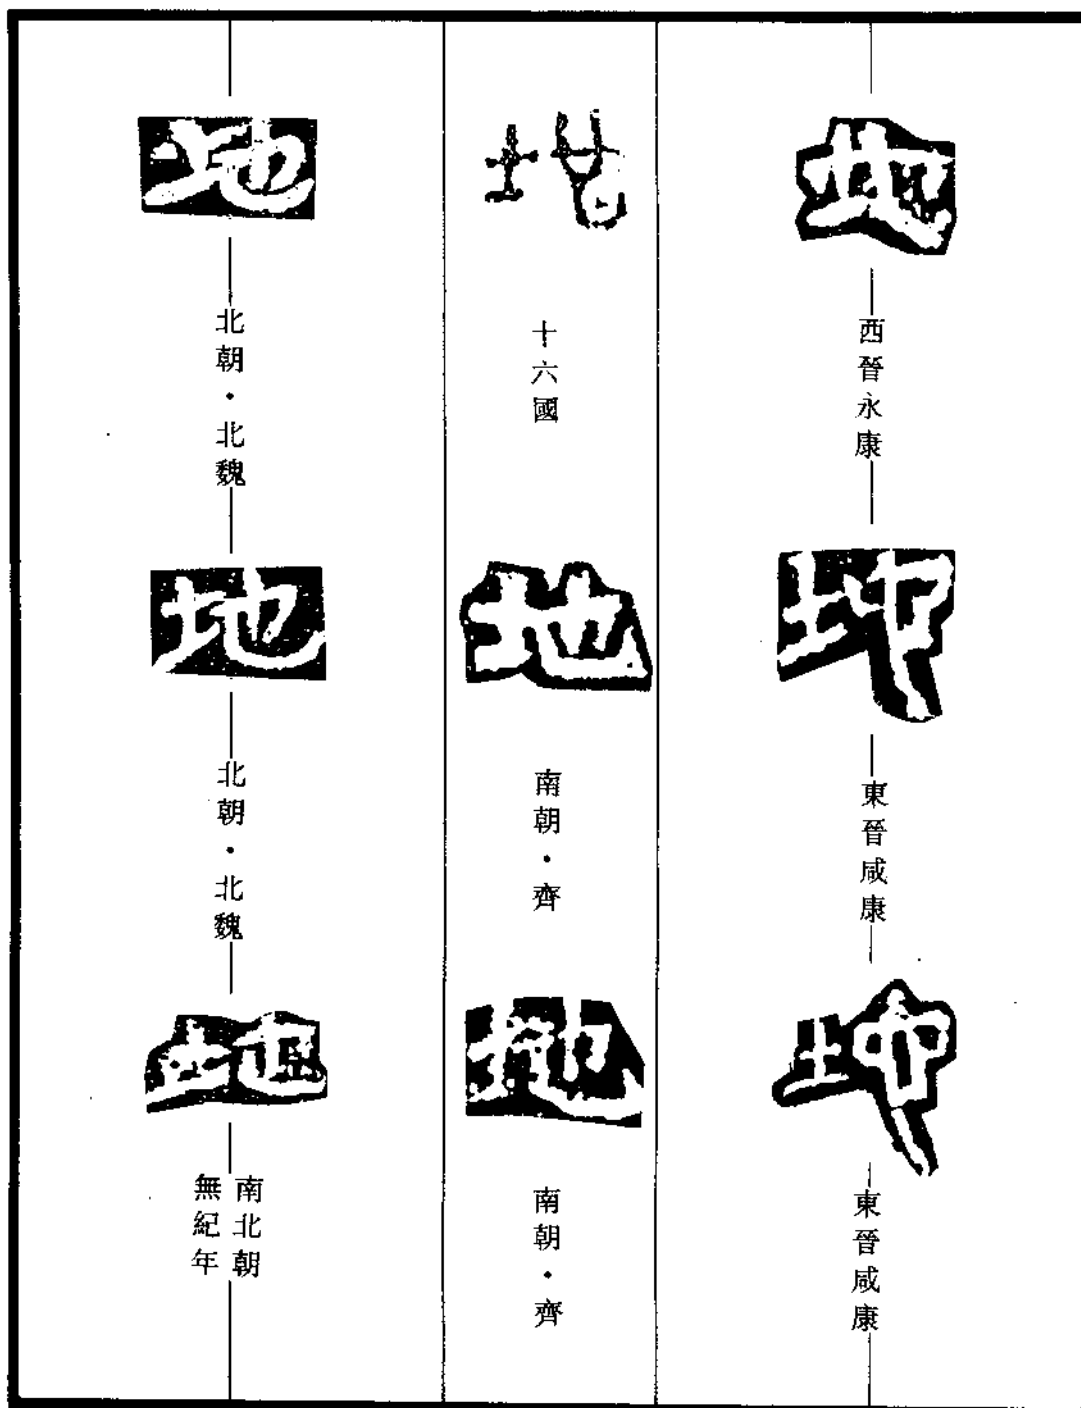 地
西晉永康
地
東晉咸康
地
東晉咸康
地
十六國
地
南朝·齊
地
南朝·齊
地
北朝·北魏
地
北朝·北魏
地
南北朝
無紀年